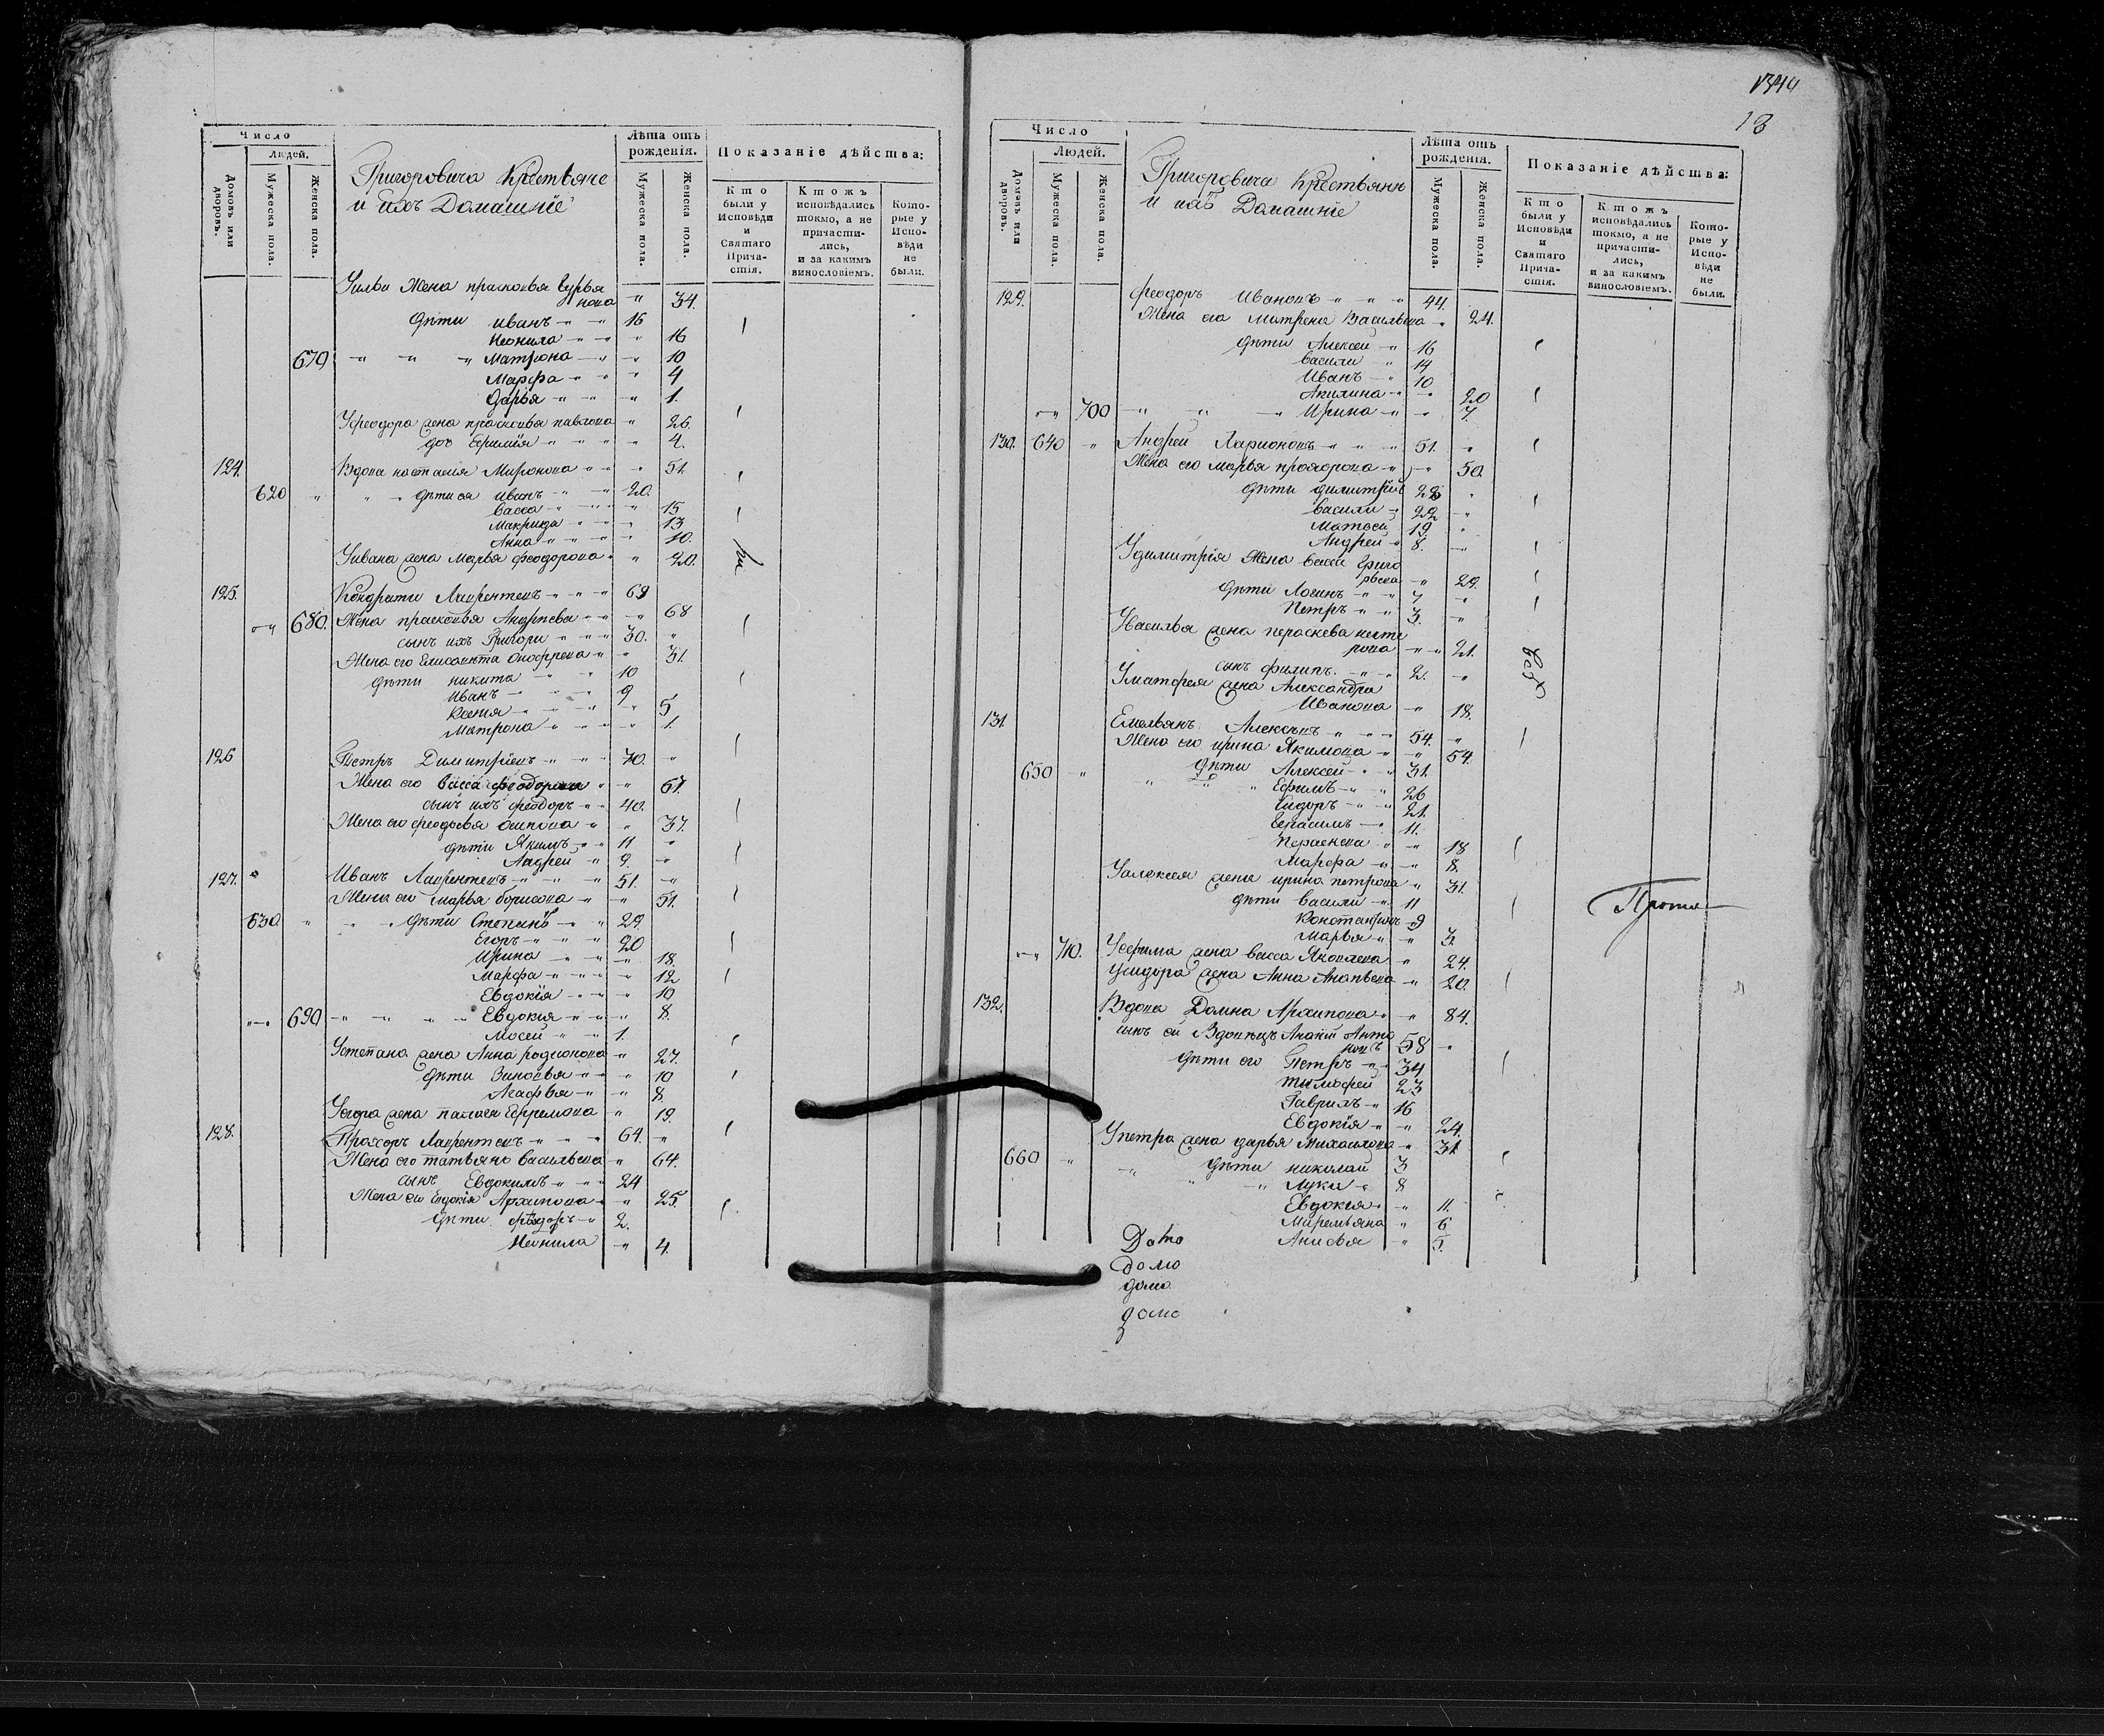 Число
Людей.
Домовъ или дворовъ.
Мужеска пола.
Женска пола.
Григоровича Крестьяне
и ихъ Домашніе
Лѣта отъ рожденія.
Мужеска пола.
Женска пола.
Показаніе дѣйства:
Кто были у Исповѣди и Святаго Причастія.
Ктожъ исповѣдались токмо, а не причастились, и за какимъ винословіемъ.
Которые у Исповѣди не были.
Жена прасковья Гурья
нова " 34.
дѣти иванъ " " 16
Неонила " " " 16
670 " " " Матрона " " 10
Марфа " " " 4
Дарья " " " 1.
Уфеодора жена прасковья павлова " 26.
4.
124. Вдова настасия Миронова " " " 51.
620 " " " дѣти ея иванъ " " 20.
васса " " " 15
Макрида " " " 13
Анна " " " 10.
Уивана жена Марья феодорова " " 20.
125. Кондрати Лаврентевъ " " " 69
" " 680. Жена прасковья Андреева " " " 68
сынъ ихъ Григори " " " 30. "
Жена его Елисавета Онофрева " " 31.
дѣти никита " " 10
иванъ " " " 9
Ксения " " " " 5
Матрона " " " " 1.
126 Петръ Димитріевъ " " " 70. "
Жена его васса феодорова " " 67.
сынъ ихъ феодоръ " " 40.
Жена его феодосья осипова " " 37.
дѣти Якимъ " " 11 "
Андрей " 9. "
127. Иванъ Лаврентевъ " " " 51. "
Жена его марья борисова " " 51.
630. " " " дѣти Степанъ " " 29.
Егоръ " " " 20
Ирина " " " 18.
Марфа " " " " 12
Евдокія " " " 10
" " 690 " " " " Евдокия " " " 8.
Мосей " " 1.
Устепана жена Анна родионова " 27.
дѣти Зиновья " " " 10
Агафья " " 8
Уегора жена Ефремова " 19.
128. Прохоръ Лаврентевъ " " " 64. "
Жена его татьяна васильева " 64.
сынъ Евдокимъ " " " 24
Жена его Евдокія Архипова " " 25.
дѣти феодоръ " 2.
Неонила " 4.
1344
13
Число
Людей.
Домовъ или дворовъ.
Мужеска пола.
Женска пола.
Григоровича Крестьяне
и ихъ Домашніе
Лѣта отъ рожденія.
Мужеска пола.
Женска пола.
Показаніе дѣйства:
Кто были у Исповѣди и Святаго Причастія.
Ктожъ исповѣдались токмо, а не причастились, и за какимъ винословіемъ.
Которые у Исповѣди не были.
129. феодоръ Ивановъ " " " 44.
Жена его Матрена Васильева " 24.
дѣти Алексей " 16
васили " 14
Иванъ " 10
Акилина " " 20
" " 700 " " " Ирина " " 7.
130. 640 " Андрей Ларионовъ " " " 51. "
Жена его Марья " " 50.
дѣти димитрій "
васили " 22 "
Матвей 19. "
Андрей " 8. "
Удимитрія жена васса Григо
рьева " 29.
дѣти Логинъ " " 7 "
Петръ " " 3. "
Увасилья жена пераскева
" " 21.
сынъ филипъ. " " 2. "
Уматфея жена Александра
Иванова " 18.
131. Емельянъ Алексѣевъ " " " 54. "
Жена его ирина Якимова " " 54.
650 " дѣти Алексей " " 31.
Ефимъ " " 26
Сидоръ " " 21.
Герасимъ " 11.
Пераскева " " 18
Марфа " " 8.
Уалексея жена ирина петрова " 31.
дѣти васили " 11
Константинъ 9
Марья " " 3.
" " 710. Уефима жена васса Яковлева " 24.
Усидора жена Анна Ананьева " 20.
132. Вдова Домна Архипова " " 84.
сынъ ей Вдовецъ Ананій Анто
новъ 58 "
дѣти его Петръ " 34
тимофей 23
Гаврилъ " 16
Евдокія " " 24.
Упетра жена дарья михайлова " 31.
660 " " дѣти николай 3
" " Луки " 8
Евдокія " " 11.
" 6
Анисья " 5.
Прото